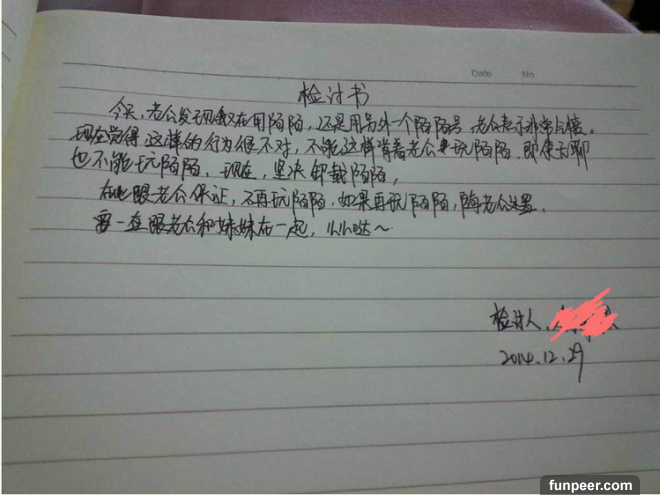 Date No.
检讨书
今天,老公发现我又在用陌陌,还是用另外一个陌陌号,老公表示非常气愤。
现在觉得这样的行为很不对,不能这样背着老公来玩陌陌,即使无聊
也不能玩陌陌,现在,坚决卸载陌陌,
在此跟老公保证,不再玩陌陌,如果再玩陌陌,随老公处置.
要一直跟老公和妹妹在一起,么么哒~
检讨人:
2014.12.29
funpeer.com